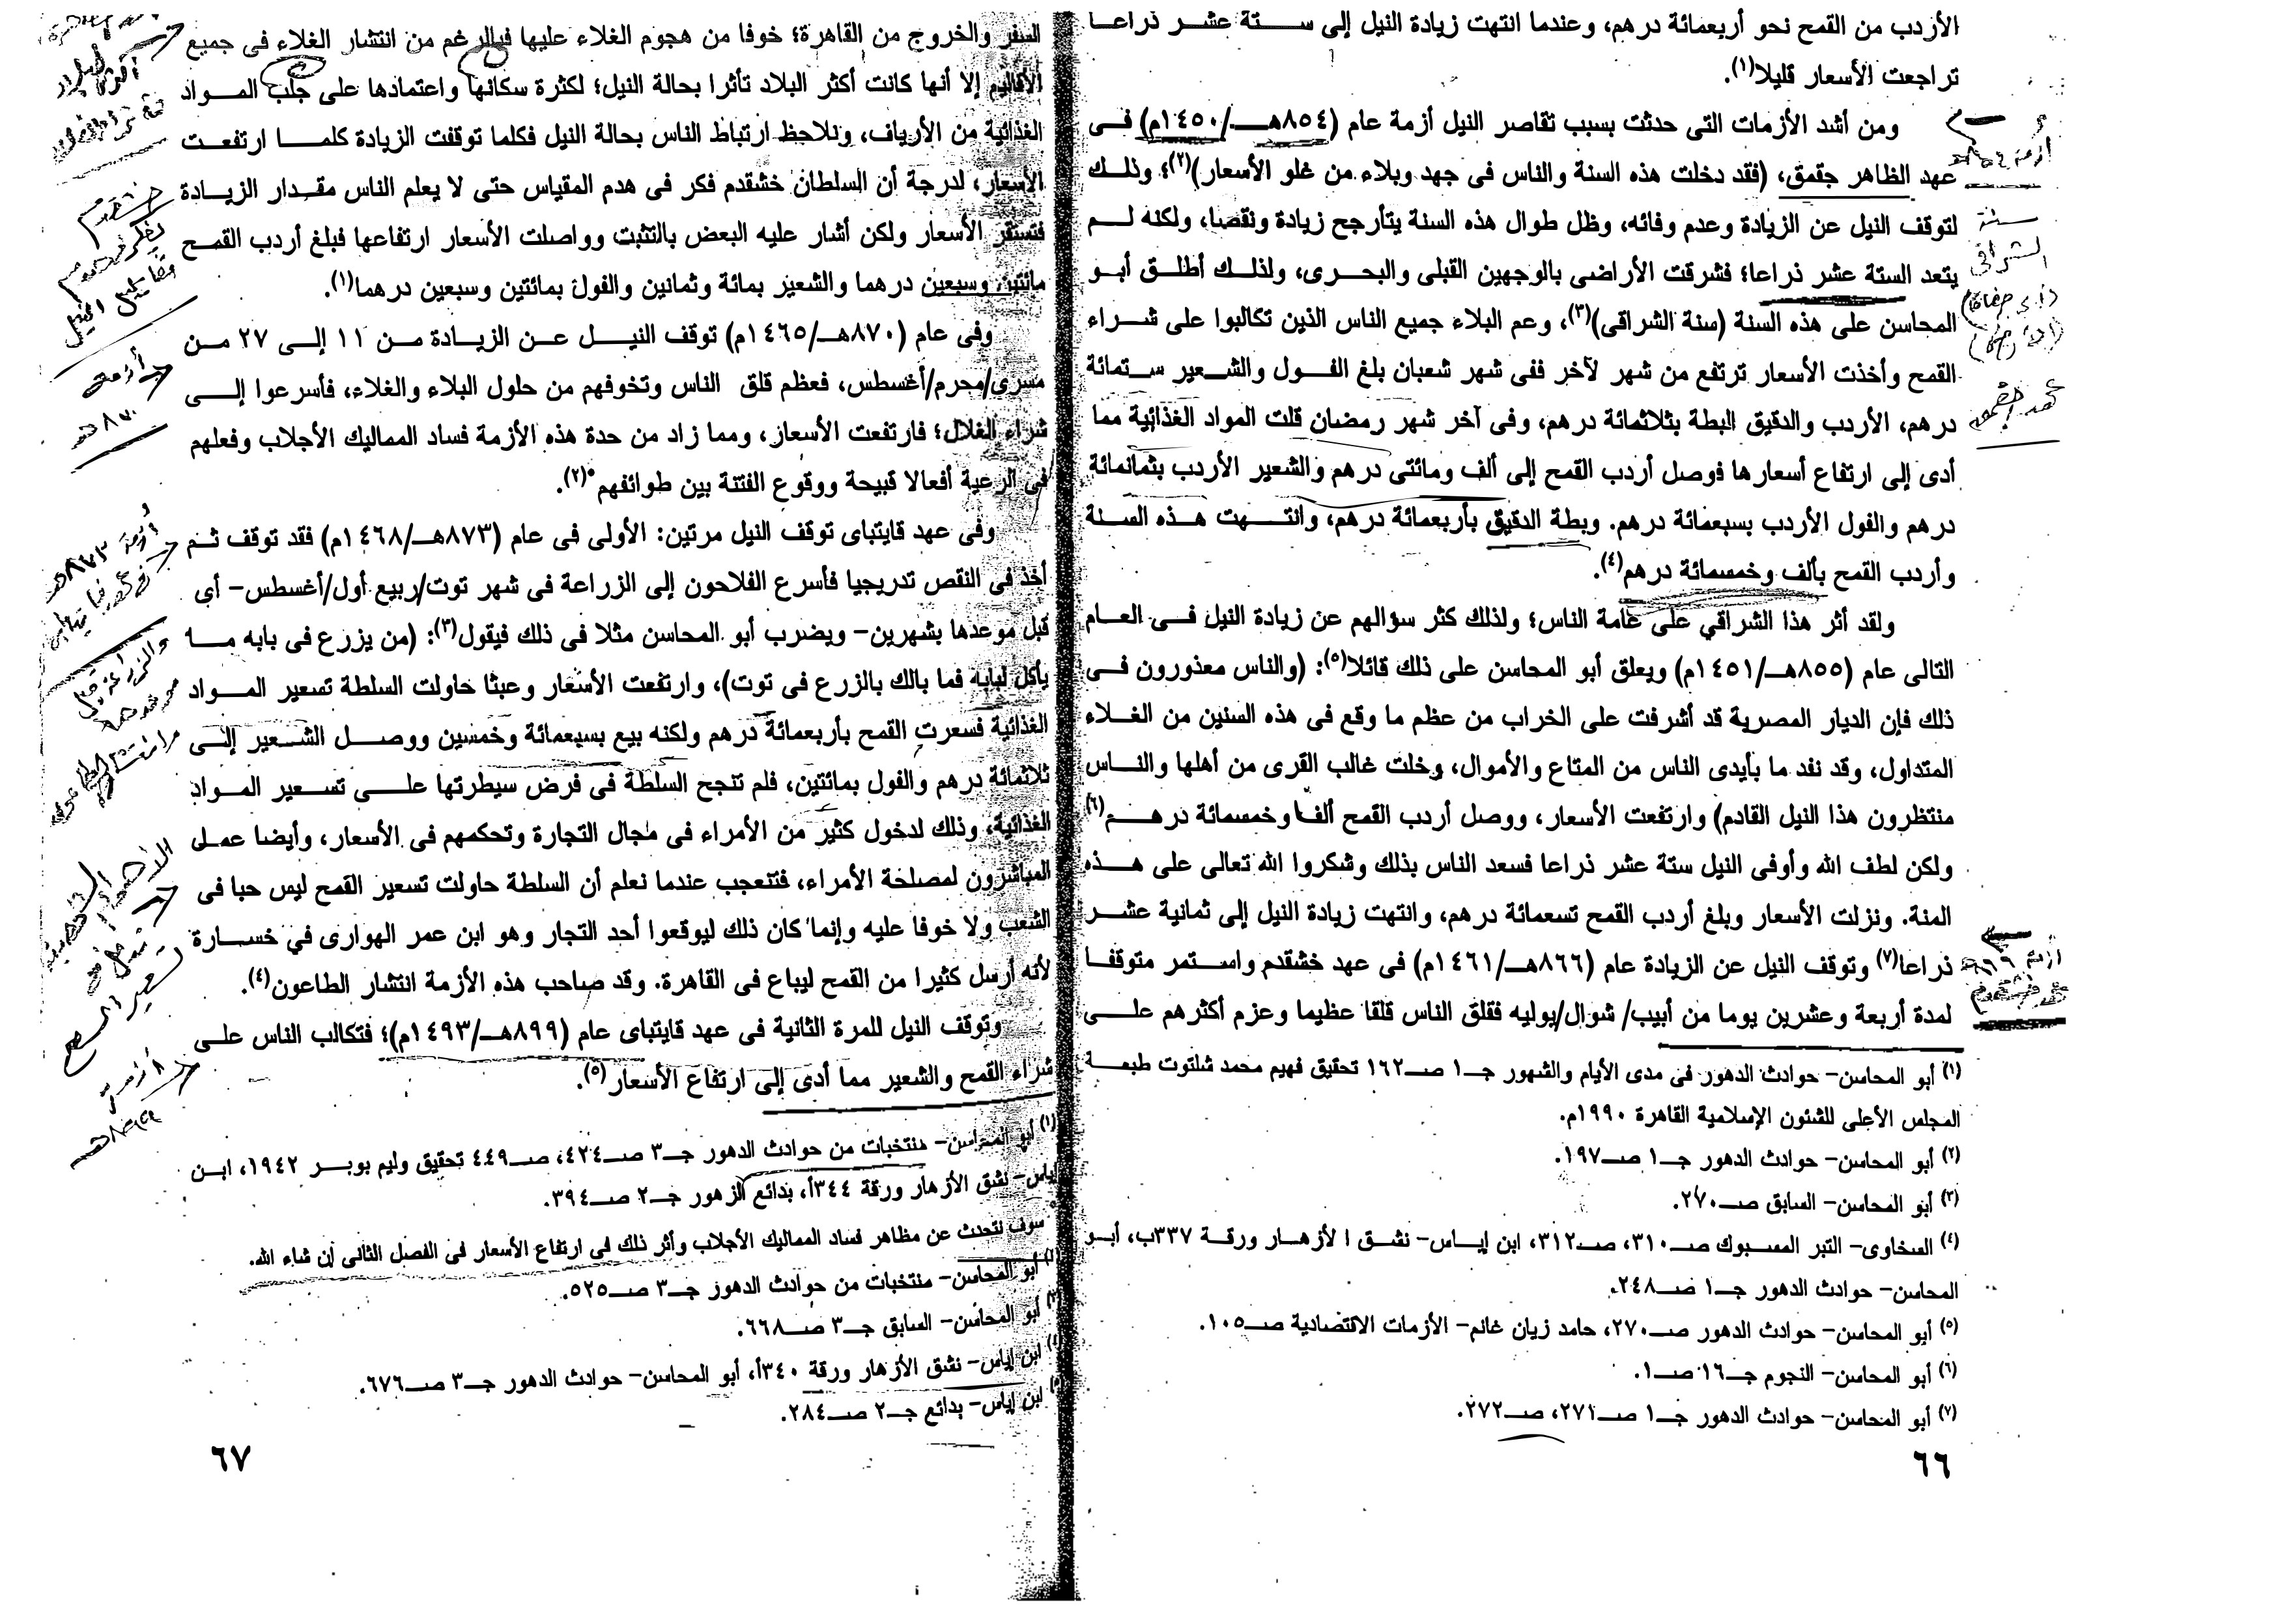 الأردب من القمح نحو أربعمائة درهم، وعندما انتهت زيادة النيل إلى ستة عشر ذراعا
تراجعت الأسعار قليلا(١).
ومن أشد الأزمات التى حدثت بسبب تقاصر النيل أزمة عام (٨٥٤هـ/١٤٥٠م) فى
عهد الظاهر جقمق، (فقد دخلت هذه السنة والناس فى جهد وبلاء من غلو الأسعار)(٢)؛ وذلك
لتوقف النيل عن الزيادة وعدم وفائه، وظل طوال هذه السنة يتأرجح زيادة ونقصا، ولكنه لم
يتعد الستة عشر ذراعا؛ فشرقت الأراضى بالوجهين القبلى والبحرى، ولذلك أطلق أبو
المحاسن على هذه السنة (سنة الشراقى)(٣)، وعم البلاء جميع الناس الذين تكالبوا على شراء
القمح وأخذت الأسعار ترتفع من شهر لآخر ففى شهر شعبان بلغ الفول والشعير ستمائة
درهم، الأردب والدقيق البطة بثلاثمائة درهم، وفى آخر شهر رمضان قلت المواد الغذائية مما
أدى إلى ارتفاع أسعارها فوصل أردب القمح إلى ألف ومائتى درهم والشعير الأردب بثمانمائة
درهم والفول الأردب بسبعمائة درهم. وبطة الدقيق بأربعمائة درهم، وانتهت هذه السنة
وأردب القمح بألف وخمسمائة درهم(٤).
ولقد أثر هذا الشراقي على عامة الناس؛ ولذلك كثر سؤالهم عن زيادة النيل فى العام
التالى عام (٨٥٥هـ/١٤٥١م) ويعلق أبو المحاسن على ذلك قائلا(٥): (والناس معذورون فى
ذلك فإن الديار المصرية قد أشرفت على الخراب من عظم ما وقع فى هذه السنين من الغلاء
المتداول، وقد نفد ما بأيدى الناس من المتاع والأموال، وخلت غالب القرى من أهلها والناس
منتظرون هذا النيل القادم) وارتفعت الأسعار، ووصل أردب القمح ألفا وخمسمائة درهم(٦)
ولكن لطف الله وأوفى النيل ستة عشر ذراعا فسعد الناس بذلك وشكروا الله تعالى على هذه
المنة. ونزلت الأسعار وبلغ أردب القمح تسعمائة درهم، وانتهت زيادة النيل إلى ثمانية عشر
ذراعا(٧) وتوقف النيل عن الزيادة عام (٨٦٦هـ/١٤٦١م) فى عهد خشقدم واستمر متوقفا
لمدة أربعة وعشرين يوما من أبيب/ شوال/يوليه فقلق الناس قلقا عظيما وعزم أكثرهم على
(١) أبو المحاسن– حوادث الدهور فى مدى الأيام والشهور جـ١ صـ١٦٢ تحقيق فهيم محمد شلتوت طبعة
المجلس الأعلى للشئون الإسلامية القاهرة ١٩٩٠م.
(٢) أبو المحاسن– حوادث الدهور جـ١ صـ١٩٧.
(٣) أبو المحاسن– السابق صـ٢٧٠.
(٤) السخاوى– التبر المسبوك صـ٣١٠، صـ٣١٢، ابن إياس– نشق الأزهار ورقة ٣٣٧ب، أبو
المحاسن– حوادث الدهور جـ١ صـ٢٤٨.
(٥) أبو المحاسن– حوادث الدهور صـ٢٧٠، حامد زيان غانم– الأزمات الاقتصادية صـ١٠٥.
(٦) أبو المحاسن– النجوم جـ١٦ صـ١.
(٧) أبو المحاسن– حوادث الدهور جـ١ صـ٢٧١، صـ٢٧٢.
٦٦
أزمة ٨٥٤هـ
سنة
الشراقى
أزمة ٨٦٦هـ
السفر والخروج من القاهرة؛ خوفا من هجوم الغلاء عليها فبالرغم من انتشار الغلاء فى جميع
الأقاليم إلا أنها كانت أكثر البلاد تأثرا بحالة النيل؛ لكثرة سكانها واعتمادها على جلب المواد
الغذائية من الأرياف، ونلاحظ ارتباط الناس بحالة النيل فكلما توقفت الزيادة كلما ارتفعت
الأسعار، لدرجة أن السلطان خشقدم فكر فى هدم المقياس حتى لا يعلم الناس مقدار الزيادة
فتستقر الأسعار ولكن أشار عليه البعض بالتثبت وواصلت الأسعار ارتفاعها فبلغ أردب القمح
مائتين وسبعين درهما والشعير بمائة وثمانين والفول بمائتين وسبعين درهما(١).
وفى عام (٨٧٠هـ/١٤٦٥م) توقف النيل عن الزيادة من ١١ إلى ٢٧ من
مسرى/محرم/أغسطس، فعظم قلق الناس وتخوفهم من حلول البلاء والغلاء، فأسرعوا إلى
شراء الغلال؛ فارتفعت الأسعار، ومما زاد من حدة هذه الأزمة فساد المماليك الأجلاب وفعلهم
فى الرعية أفعالا قبيحة ووقوع الفتنة بين طوائفهم*(٢).
وفى عهد قايتباى توقف النيل مرتين: الأولى فى عام (٨٧٣هـ/١٤٦٨م) فقد توقف ثم
أخذ فى النقص تدريجيا فأسرع الفلاحون إلى الزراعة فى شهر توت/ربيع أول/أغسطس– أى
قبل موعدها بشهرين– ويضرب أبو المحاسن مثلا فى ذلك فيقول(٣): (من يزرع فى بابه ما
يأكل لبابه فما بالك بالزرع فى توت)، وارتفعت الأسعار وعبثا حاولت السلطة تسعير المواد
الغذائية فسعرت القمح بأربعمائة درهم ولكنه بيع بسبعمائة وخمسين ووصل الشعير إلى
ثلاثمائة درهم والفول بمائتين، فلم تنجح السلطة فى فرض سيطرتها على تسعير المواد
الغذائية، وذلك لدخول كثير من الأمراء فى مجال التجارة وتحكمهم فى الأسعار، وأيضا عمل
المباشرون لمصلحة الأمراء، فنتعجب عندما نعلم أن السلطة حاولت تسعير القمح ليس حبا فى
الشعب ولا خوفا عليه وإنما كان ذلك ليوقعوا أحد التجار وهو ابن عمر الهوارى في خسارة
لأنه أرسل كثيرا من القمح ليباع فى القاهرة. وقد صاحب هذه الأزمة انتشار الطاعون(٤).
وتوقف النيل للمرة الثانية فى عهد قايتباى عام (٨٩٩هـ/١٤٩٣م)؛ فتكالب الناس على
شراء القمح والشعير مما أدى إلى ارتفاع الأسعار(٥).
(١) أبو المحاسن– منتخبات من حوادث الدهور جـ٣ صـ٤٢٤، صـ٤٤٩ تحقيق وليم بوبر ١٩٤٢، ابن
إياس– نشق الأزهار ورقة ٣٤٤أ، بدائع الزهور جـ٢ صـ٣٩٤.
* سوف نتحدث عن مظاهر فساد المماليك الأجلاب وأثر ذلك فى ارتفاع الأسعار فى الفصل الثانى إن شاء الله.
(٢) أبو المحاسن– منتخبات من حوادث الدهور جـ٣ صـ٥٢٥.
(٣) أبو المحاسن– السابق جـ٣ صـ٦٦٨.
(٤) ابن إياس– نشق الأزهار ورقة ٣٤٠أ، أبو المحاسن– حوادث الدهور جـ٣ صـ٦٧٦.
(٥) ابن إياس– بدائع جـ٢ صـ٢٨٤.
٦٧
خشقدم
يفكر فى هدم
مقاييس النيل
أزمة
٨٧٠هـ
أزمة ٨٧٣هـ
أزمة
٨٩٩هـ